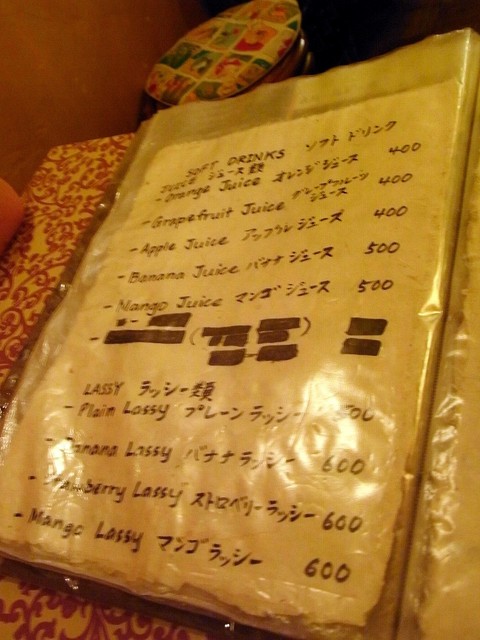 SOFT DRINKS ソフト ドリンク
JUICE ジュース類
- Orange Juice オレンジジュース 400
- Grapefruit Juice グレープフルーツジュース 400
- Apple Juice アップルジュース 400
- Banana Juice バナナジュース 500
- Mango Juice マンゴジュース 500
LASSY ラッシー類
- Plain Lassy プレーンラッシー
- Banana Lassy バナナラッシー 600
- Strawberry Lassy ストロベリーラッシー 600
- Mango Lassy マンゴラッシー 600